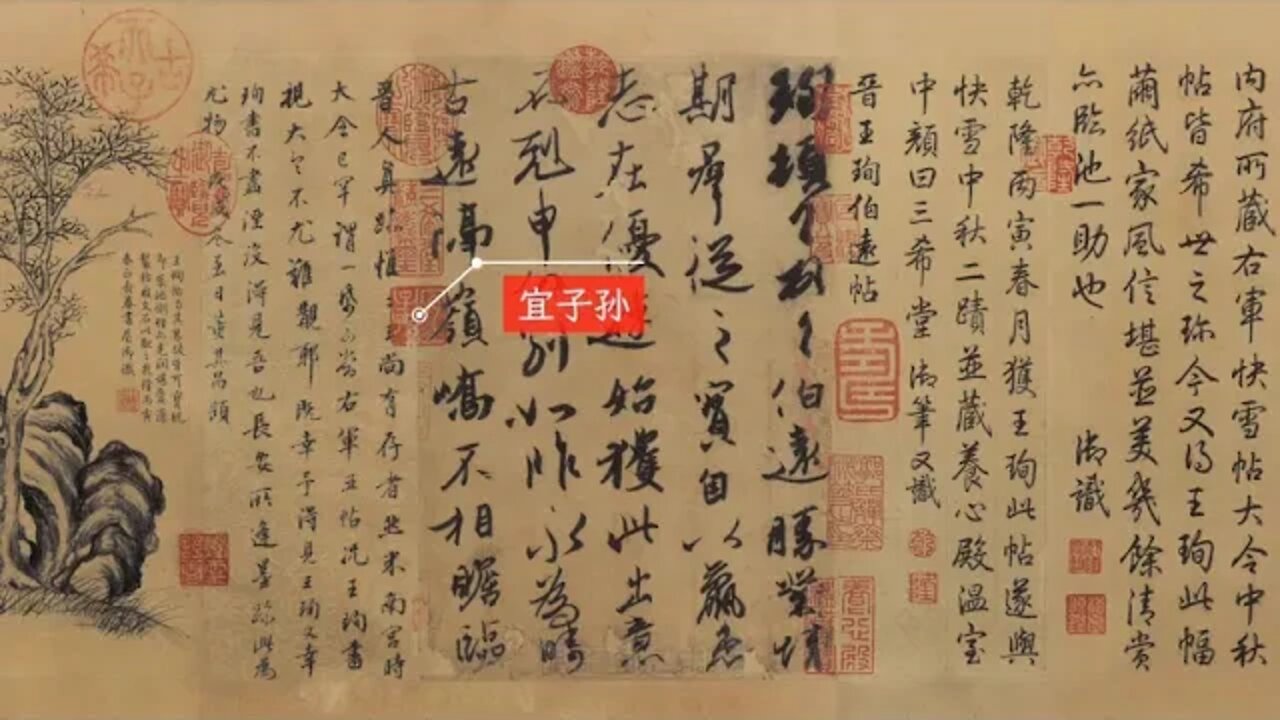 内府所藏右軍快雪帖大令中秋
帖皆希世之珎今又得王珣此幅
繭紙家風信堪並美幾餘清賞
亦臨池一助也 御識
乾隆丙寅春月獲王珣此帖遂與
快雪中秋二蹟並藏養心殿溫室
中顏曰三希堂 御筆又識
晉王珣伯遠帖
珣頓首頓首伯遠勝業情
期群從之寶自以羸患
志在優遊始獲此出意
不剋申分別如昨永為疇
古遠隔嶺嶠不相瞻臨
宜子孙
晉人真跡惟二王尚有存者然米南宮時
大令已罕謂一紙可當右軍五帖况王珣書
視大令不尤難覯耶既幸予得見王珣又幸
珣書不盡湮沒得見吾也長安所逢墨跡此為
尤物戊戌冬至日董其昌題